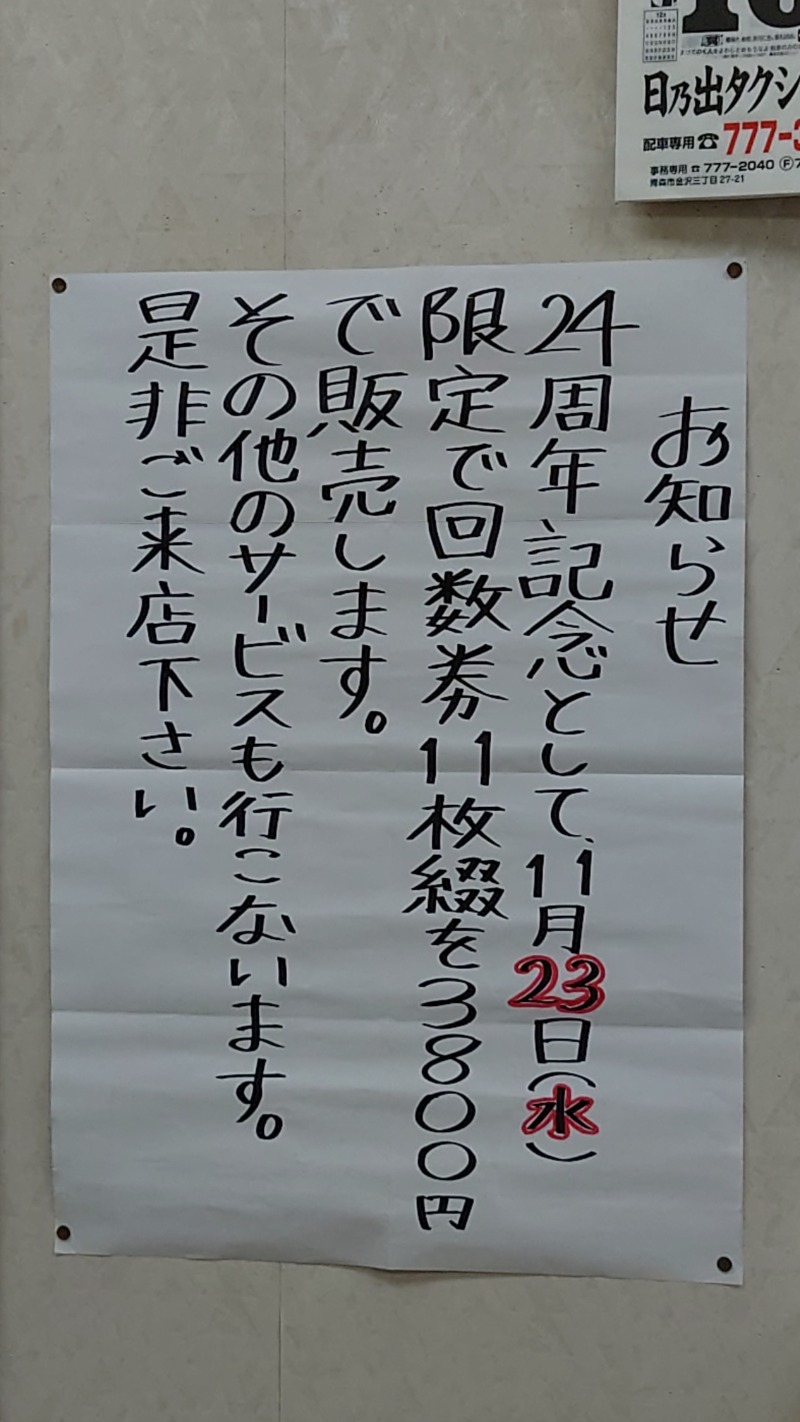 お知らせ
24周年記念として、11月23日(水)
限定で回数券11枚綴を3800円
で販売します。
その他のサービスも行こないます。
是非ご来店下さい。
日乃出タクシ
配車専用☎777-3
事務専用☎777-2040 Ⓕ7
青森市金沢三丁目27-21